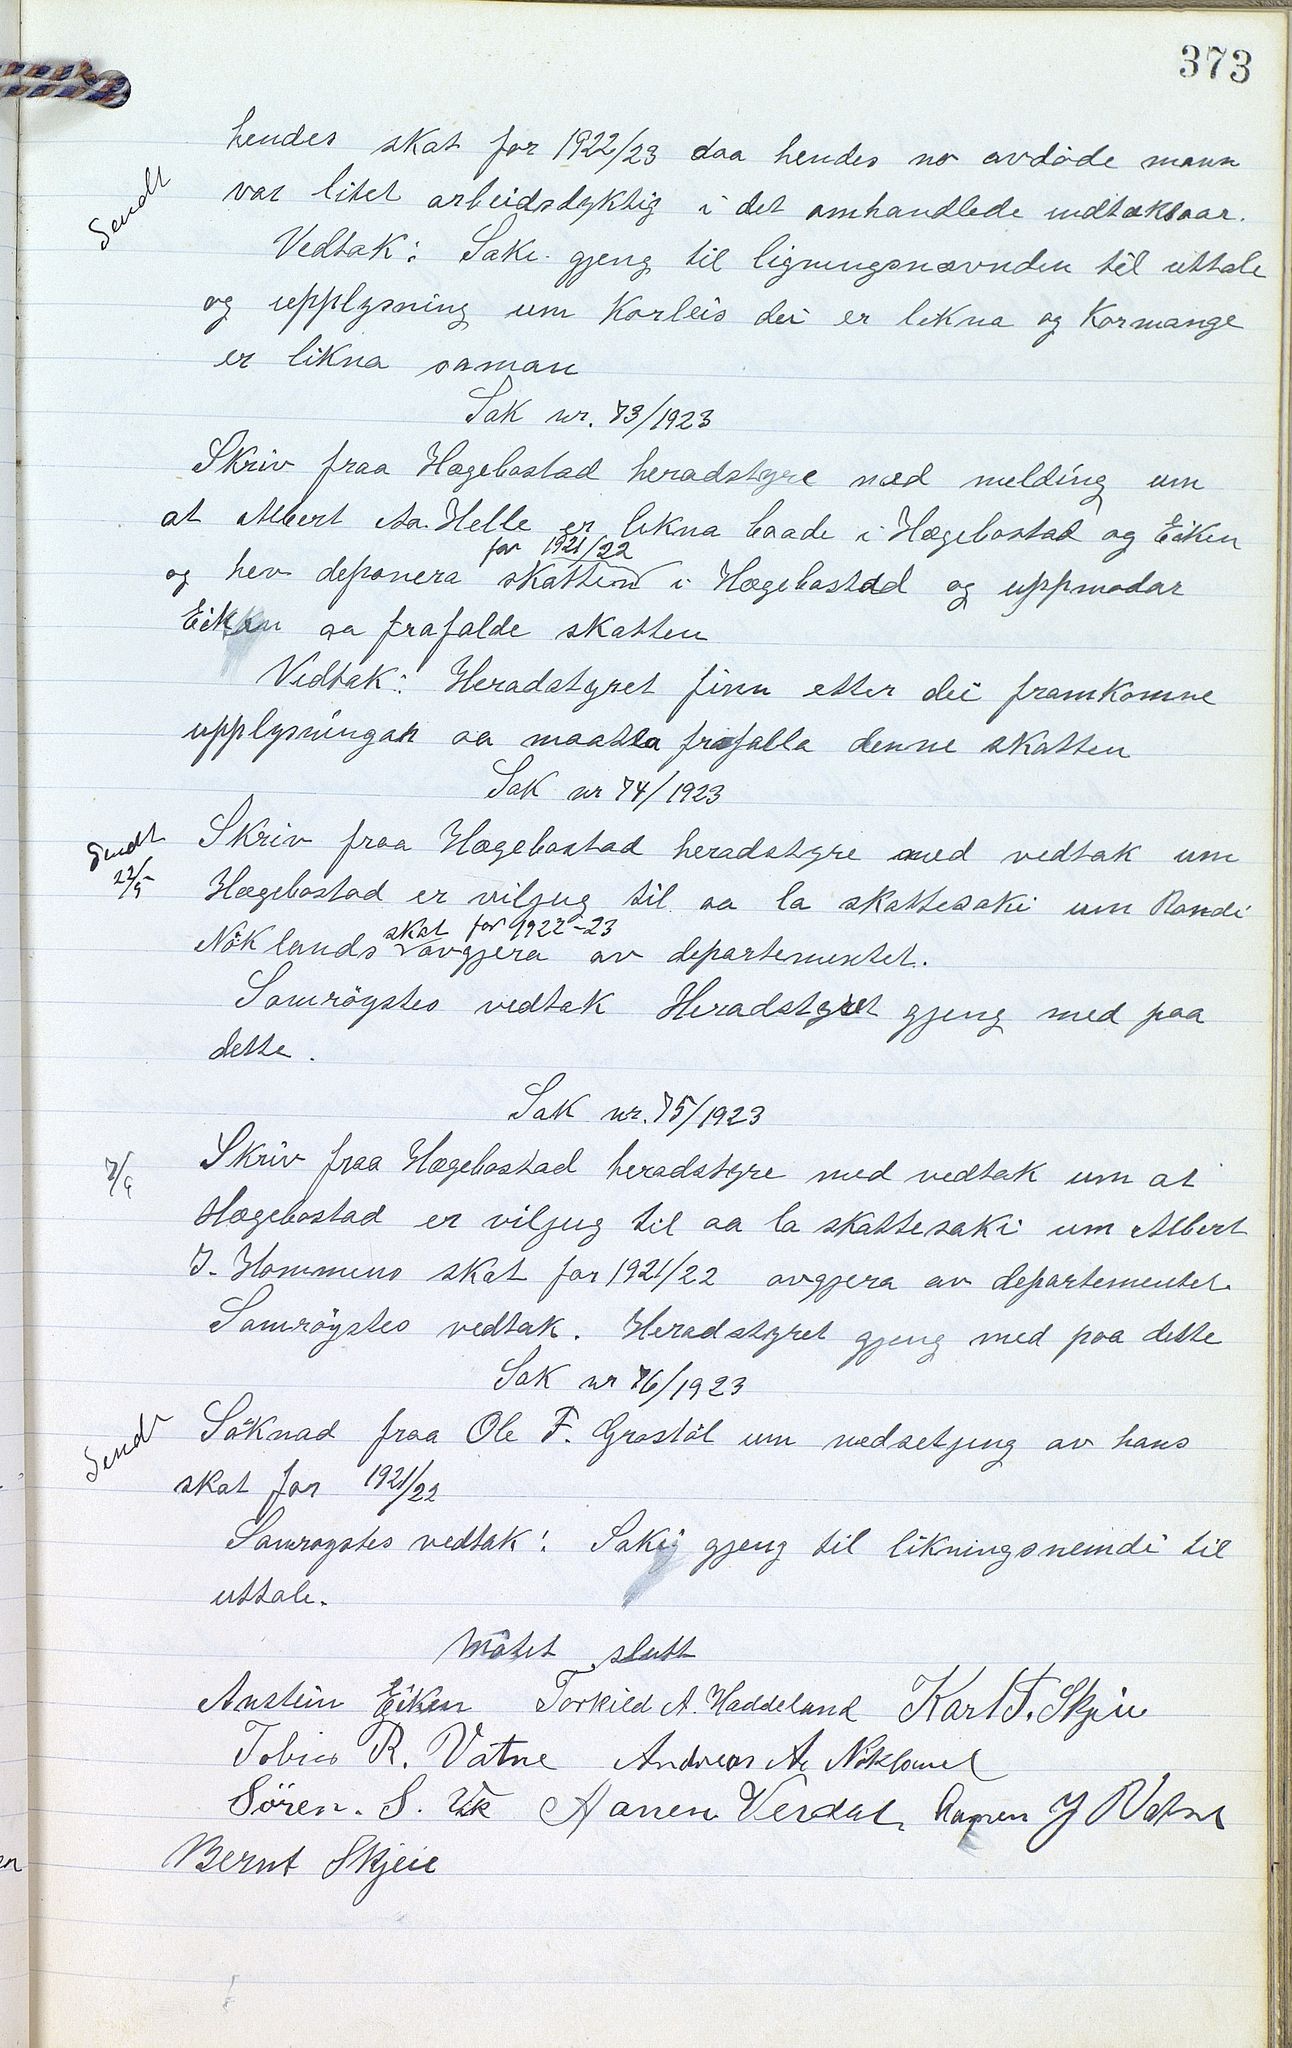 373
hendes skat for 1922/23 daa hendes no avdöde mann
Sendt
var litet arbeidsdyktig i det omhandlede indtæktsaar.
Vedtak: Saki gjeng til ligningsnævnden til uttale
og upplysning um korleis dei er likna og kormange
er likna saman
Sak nr. 73/1923
Skriv fraa Hægebostad heradstyre med melding um
at Albert Aa. Helle er likna baade i Hægebostad og Eiken
for 1921/22
og hev deponera skatten i Hægebostad og uppmodar
Eiken aa frafalde skatten
Vedtak: Heradstyret finn etter dei framkomne
upplysningar aa maatta frafalla denne skatten
Sak nr 74/1923
Sendt
22/9
Skriv fraa Hægebostad heradstyre med vedtak um
Hægebostad er viljug til aa la skattesaki um Randi
skat for 1922-23
Nöklands avgjera av departementet.
Samröystes vedtak Heradstyret gjeng med paa
dette.
Sak nr. 75/1923
7/9
Skriv fraa Hægebostad heradstyre med vedtak um at
Hægebostad er viljug til aa la skattesaki um Albert
J. Hommens skat for 1921/22 avgjera av departementet.
Samröystes vedtak. Heradstyret gjeng med paa dette
Sak nr 76/1923
Sendt
Söknad fraa Ole F. Grostöl um nedsetjing av hans
skat for 1921/22
Samroystes vedtak: Saki gjeng til likningsnemdi til
uttale.
Mötet slutt
Anstein Eiken Torkild A. Haddeland Karl F. Skjeie
Tobias R. Vatne Andreas A. Nökland
Sören. S. Eik Aanen Verdal. Aanen J Vatne
Bernt Skjeie